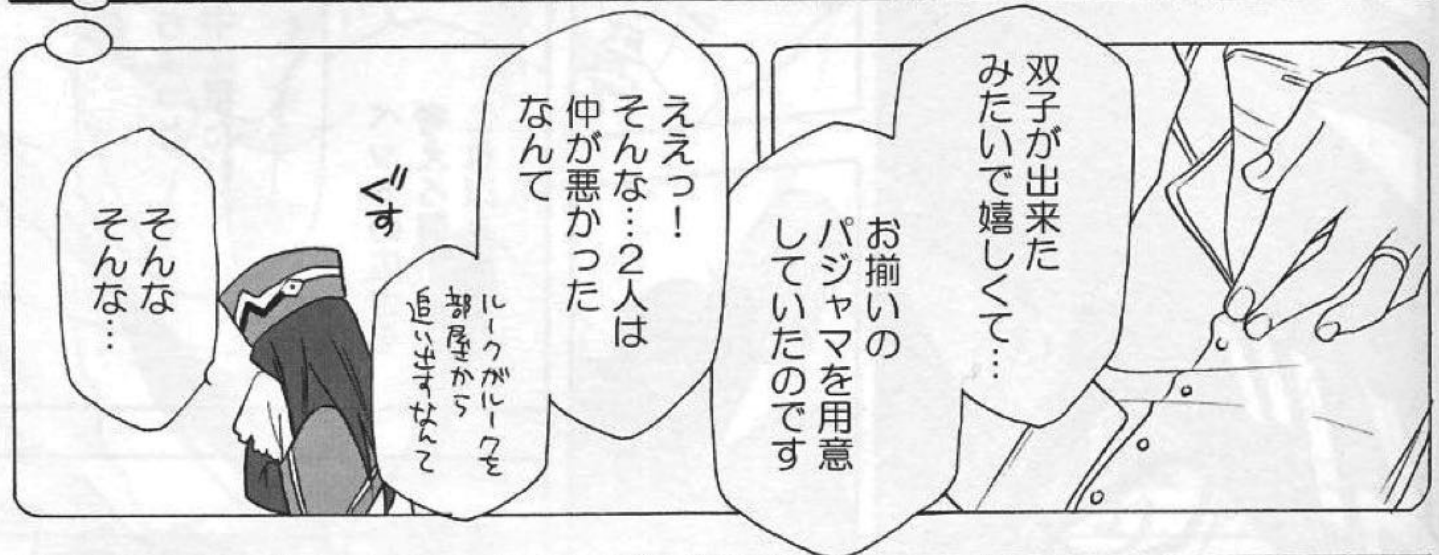 双子が出来た
みたいで嬉しくて…
お揃いの
パジャマを用意
していたのです
ええっ！
そんな…２人は
仲が悪かった
なんて
ルークがルークを
部屋から
追い出すなんて
ぐす
そんな
そんな…